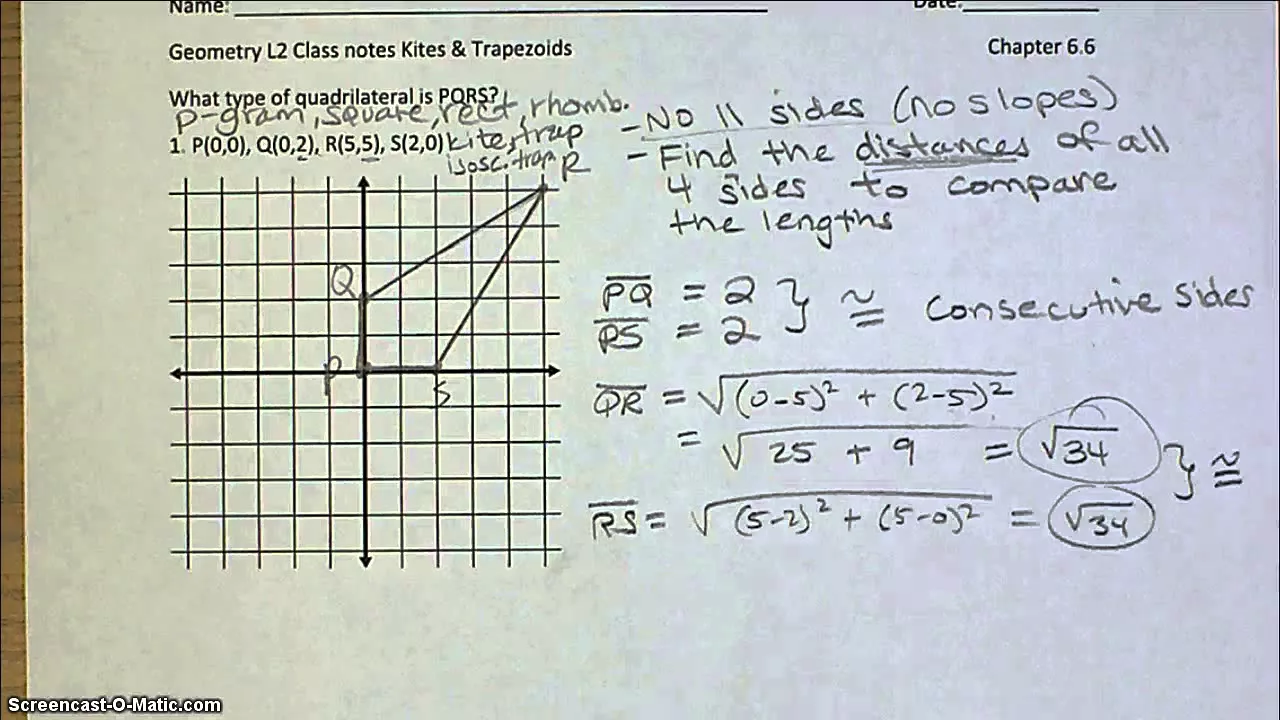 Name:
Date:
Geometry L2 Class notes Kites & Trapezoids
Chapter 6.6
What type of quadrilateral is PQRS?
p-gram, square, rect, rhomb.
1. P(0,0), Q(0,2), R(5,5), S(2,0) kite, trap
isosc. trap
- No || sides (no slopes)
- Find the distances of all
4 sides to compare
the lengths
R
Q
P
S
PQ = 2 } ≅ consecutive sides
PS = 2
QR = √(0-5)² + (2-5)²
= √25 + 9 = √34 } ≅
RS = √(5-2)² + (5-0)² = √34
Screencast-O-Matic.com